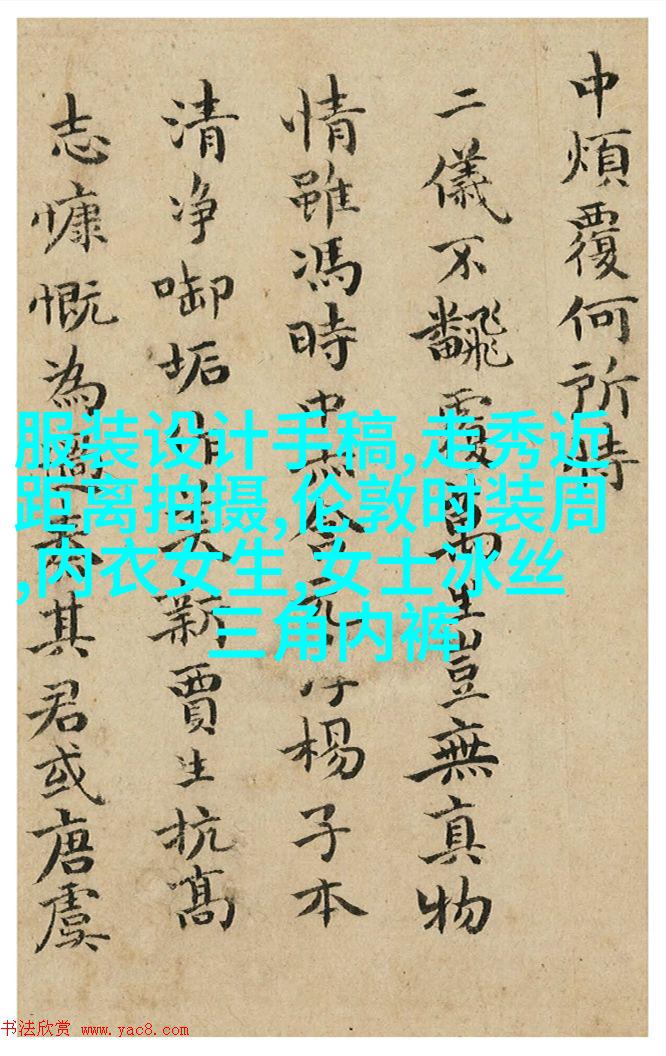 中煩覆何所恃
二儀不飜覆萬生豈無真物
情雖馮時中
楊子本
清净啣垢
其新賈生抗高
志慷慨為
其君或唐虞
服装设计手稿,走秀近
距离拍摄,伦敦时装周
,内衣女生,女士冰丝
三角内裤
书法欣赏 www.yac8.com